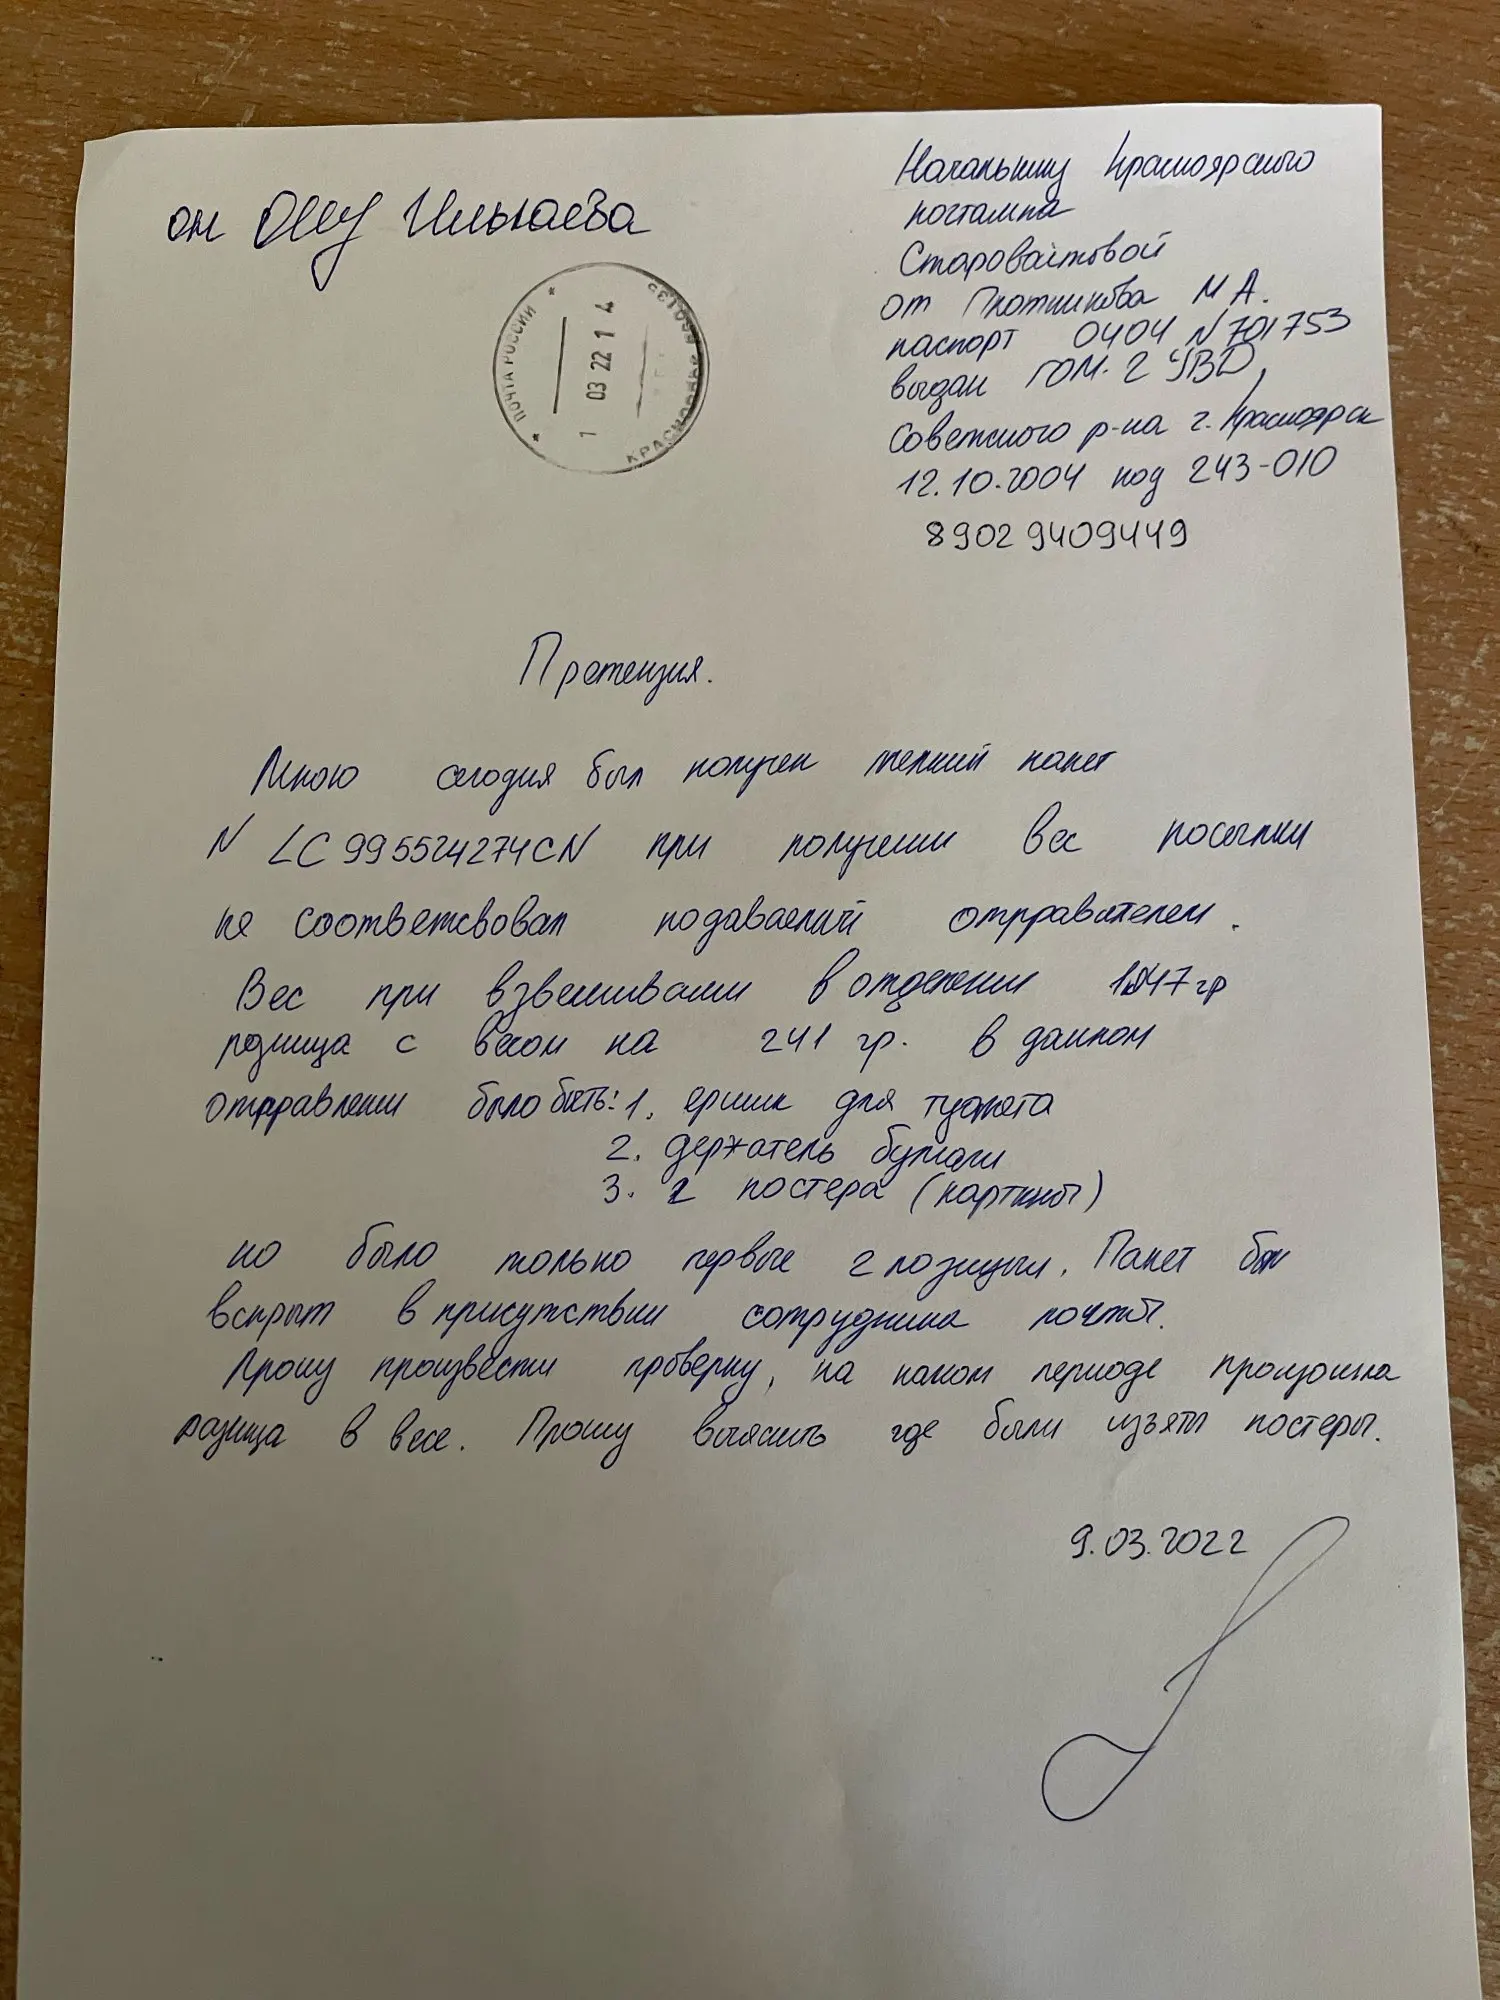 Начальнику Красноярского
почтампа
Старовойтовой
от Плотникова М А.
паспорт 0404 N 701753
выдан ГОМ. 2 УВД,
Советского р-на г. Красноярск
12.10.2004 код 243-010
89029409449
ПОЧТА РОССИИ
03 22 1 4
КРАСНОЯРСК
Претензия.
Мною сегодня был получен мелкий пакет
N LC995524274CN при получении вес посылки
не соответсвовал подаваемый отправителем.
Вес при взвешивании в отделении гр
разница с весом на 241 гр. в данном
отправлении было быть: 1. ершик для туалета
2. держатель бумаги
3. 2 постера (картины)
но было только первые 2 позиции. Пакет был
вскрыт в присутствии сотрудника почты.
Прошу произвести проверку, на каком периоде произошла
разница в весе. Прошу выяснить где были изъяты постеры.
9.03.2022